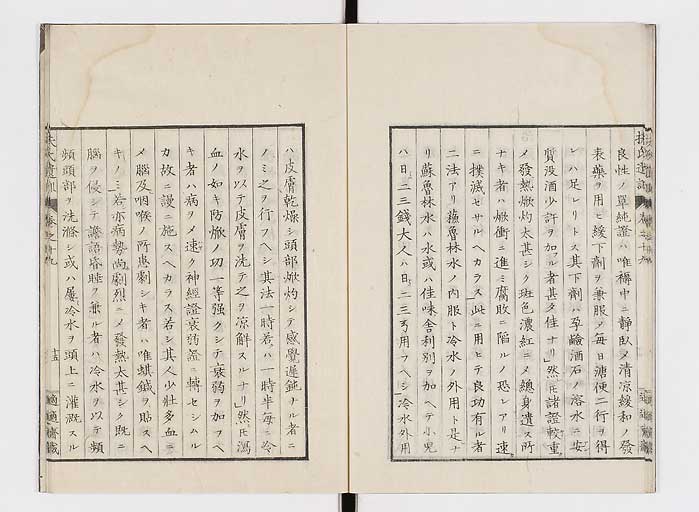 良性ノ單純證ハ唯褥中ニ靜臥メ清凉緩和ノ發
表藥ヲ用ヒ緩下劑ヲ兼服メ毎日溏便二行ヲ得
レハ足レリトス其下劑ハ孕鹼酒石ノ溶水ニ安
質没酒少許ヲ加フル者甚タ佳ナリ然𪜈諸證較重
メ發熱焮灼太甚シク斑色濃紅ニメ總身遺ス所
ナキ者ハ焮衝ニ進ミ腐敗ニ陥ルノ恐レアリ速
ニ撲滅セサルヘカラス此ニ用ヒテ良功有ル者
二法アリ蘓魯林水ノ内服ト冷水ノ外用ト是ナ
リ蘇魯林水ハ水或ハ佳味舎利別ヲ加ヘテ小兒
ハ日ニ二三錢大人ハ日ニ二三弓用フヘシ冷水外用
ハ皮膚乾燥シ頭部焮灼シテ感覺遲鈍ナル者ニ
ノミ之ヲ行フヘシ其法一時若ハ一時半毎ニ冷
水ヲ以テ皮膚ヲ洗テ之ヲ凉解スルナリ然𪜈瀉
血ノ如キ防焮ノ功一等強クシテ衰弱ヲ加フヘ
キ者ハ病ヲメ速ク神經證衰弱證ニ轉セシムル
カ故ニ謾ニ施スヘカラス若シ其人少壯多血ニ
メ腦及咽喉ノ所患劇シキ者ハ唯蜞鍼ヲ貼スヘ
キノミ若亦病勢尚劇烈ニメ發熱太甚シク既ニ
腦ヲ侵シテ譫語昏睡ヲ兼ル者ハ冷水ヲ以テ頻
頻頭部ヲ洗滌シ或ハ屢冷水ヲ頭上ニ灌漑スル
扶氏遺訓 卷之十九
適適齋藏